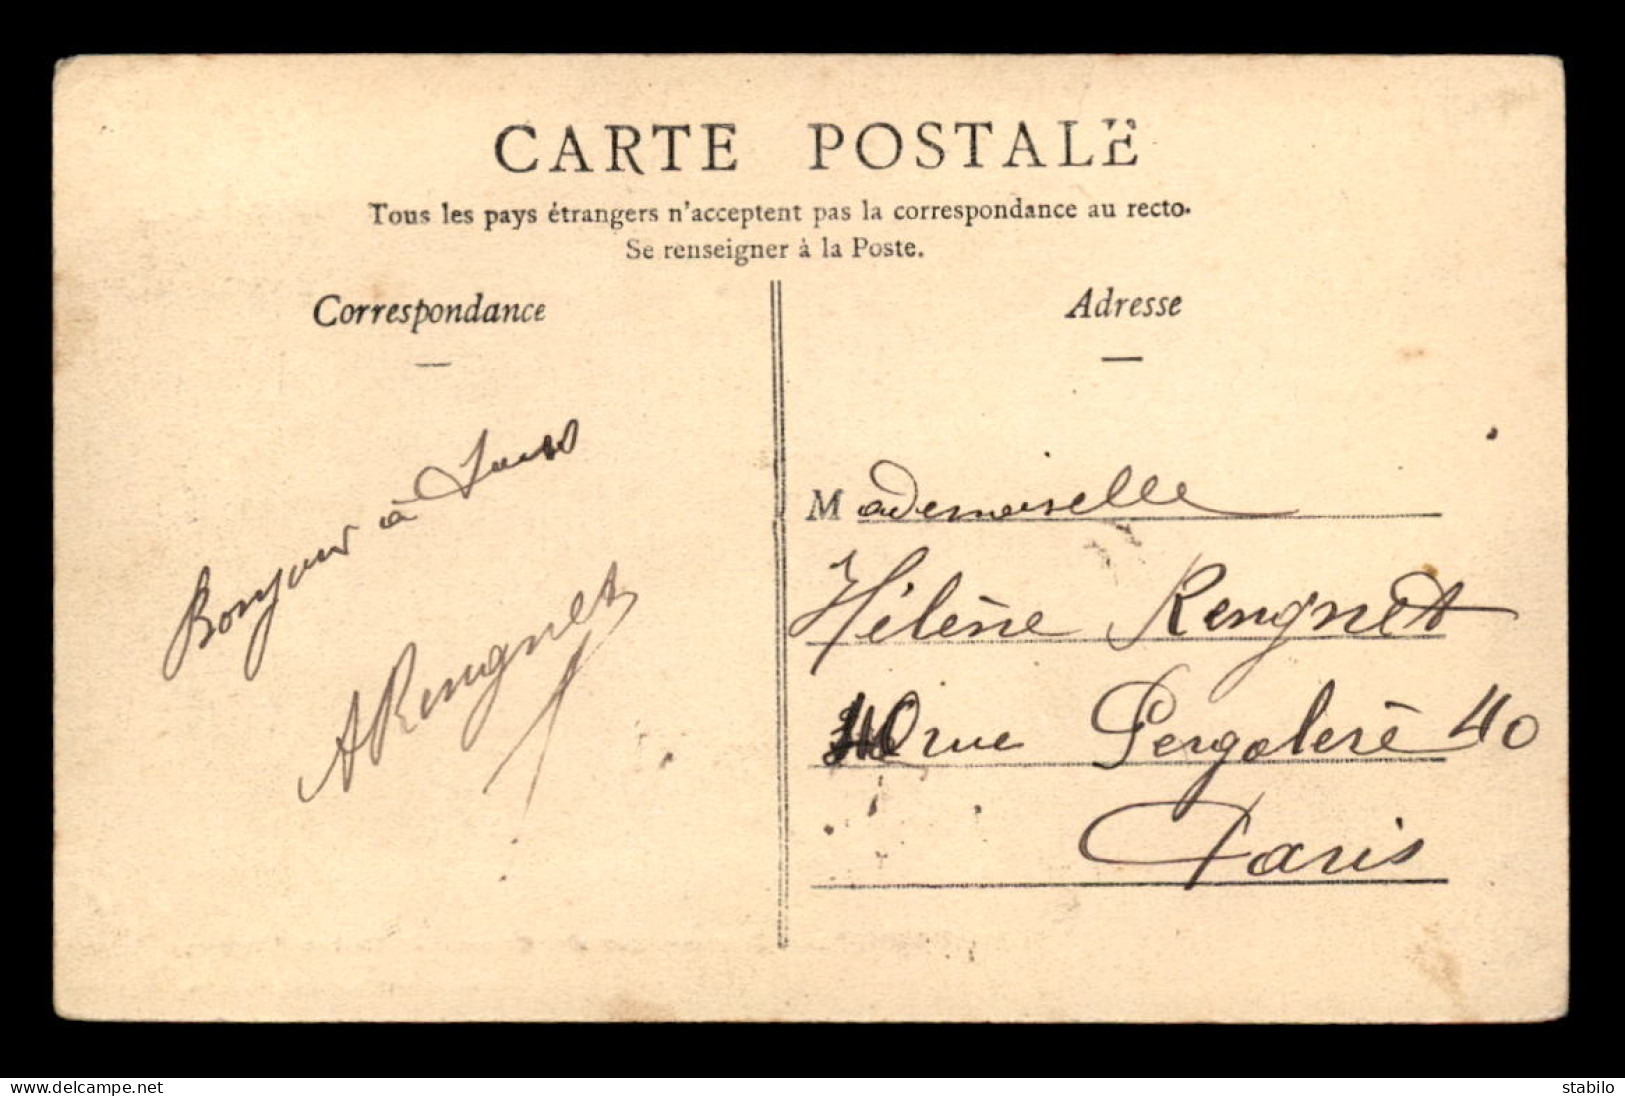 CARTE POSTALE
Tous les pays étrangers n'acceptent pas la correspondance au recto.
Se renseigner à la Poste.
Correspondance
Adresse
Bonjour à tous
ARengnet
Mademoiselle
Hélène Rengnet
40 rue Pergolèse 40
Paris
www.delcampe.net
stabilo